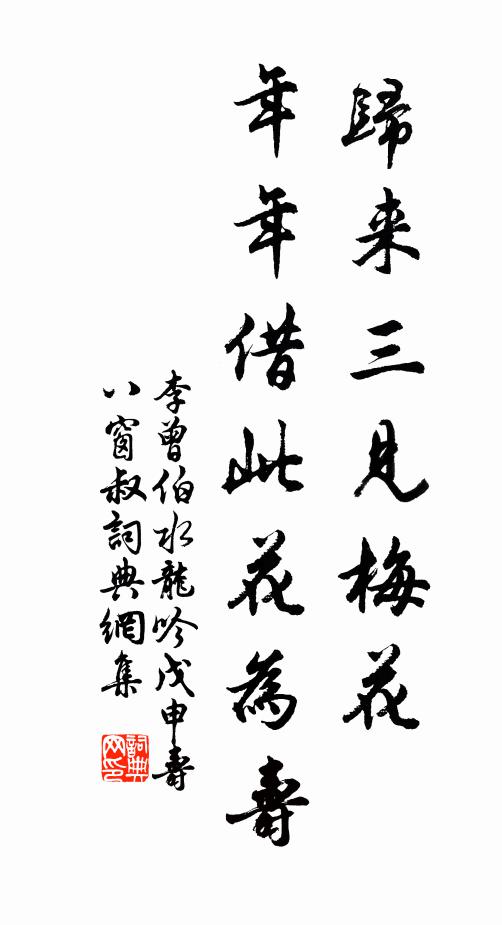 歸来三見梅花
年年借此花為壽
李曾伯水龍吟戊申壽
八窗叔詞典網集
詞典网印